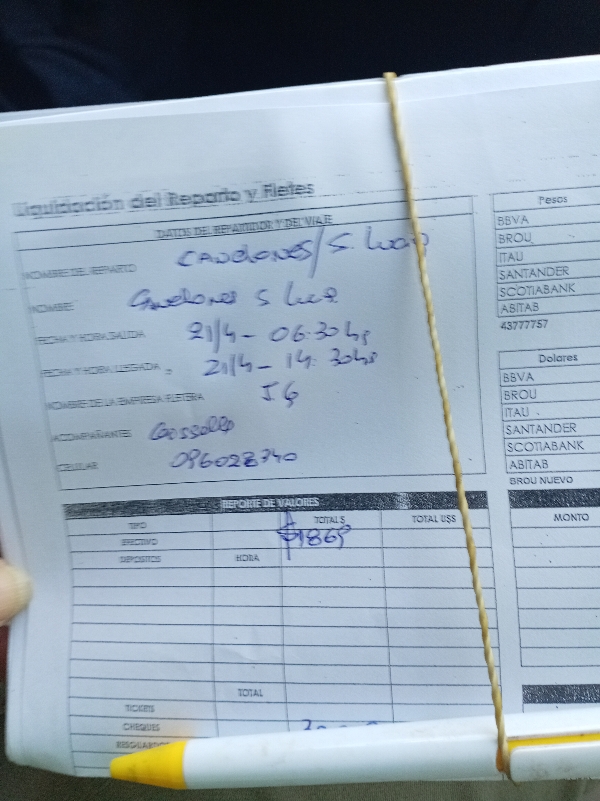 Liquidación del Reparto y Fletes
DATOS DEL REPARTIDOR Y DEL VIAJE
NOMBRE DEL REPARTO CANELONES/S. Lucia
NOMBRE Canelones S Lucia
FECHA Y HORA SALIDA 21/4 - 06:30 hs
FECHA Y HORA LLEGADA 21/4 - 14:30 hs
NOMBRE DE LA EMPRESA FLETERA
ACOMPAÑANTES
CELULAR
REPORTE DE VALORES
TIPO TOTAL $ TOTAL U$S
EFECTIVO $1869
DEPOSITOS HORA
TOTAL
TICKETS
CHEQUES
Pesos
BBVA
BROU
ITAU
SANTANDER
SCOTIABANK
ABITAB
43777757
Dolares
BBVA
BROU
ITAU
SANTANDER
SCOTIABANK
ABITAB
BROU NUEVO
MONTO